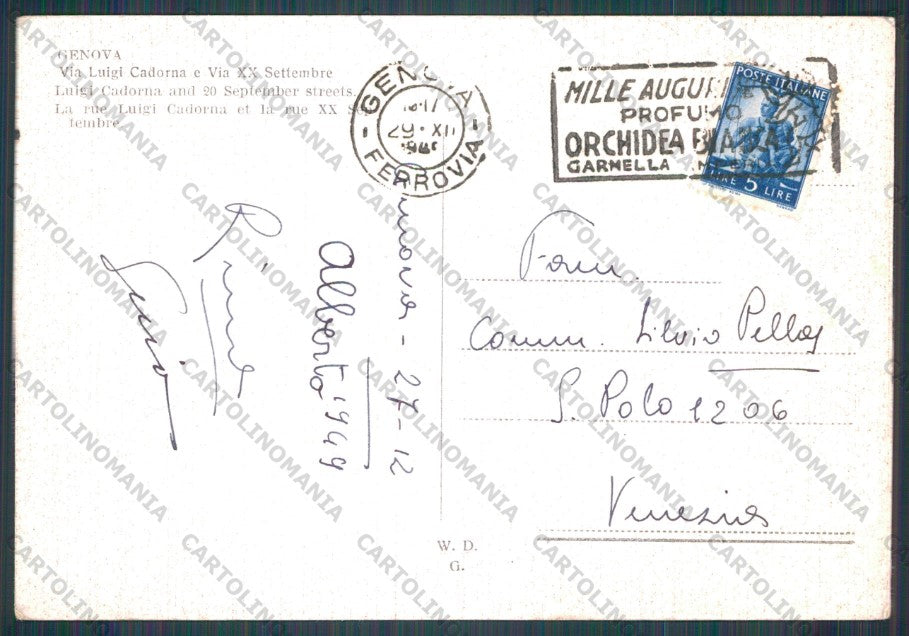 GENOVA
Via Luigi Cadorna e Via XX Settembre
Luigi Cadorna and 20 September streets.
La rue Luigi Cadorna et la rue XX Se
tembre
GENOVA
29 · XII
FERROVIA
MILLE AUGURI
PROFUMO
ORCHIDEA BIANCA
GARNELLA
POSTE ITALIANE
LIRE 5 LIRE
Genova - 27-12
1949
Alberto
Fam.
Comm. Silvio Pellas
S. Polo 1206
Venezia
W. D.
G.
CARTOLINOMANIA